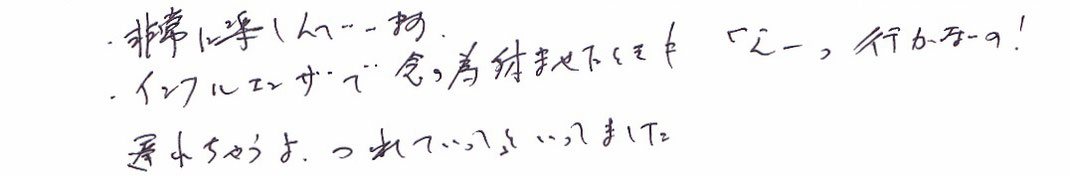 ・非常に楽しんでいます。
・インフルエンザで念の為休ませたときも「えーっ行かないの!
遅れちゃうよ、つれていってといってました